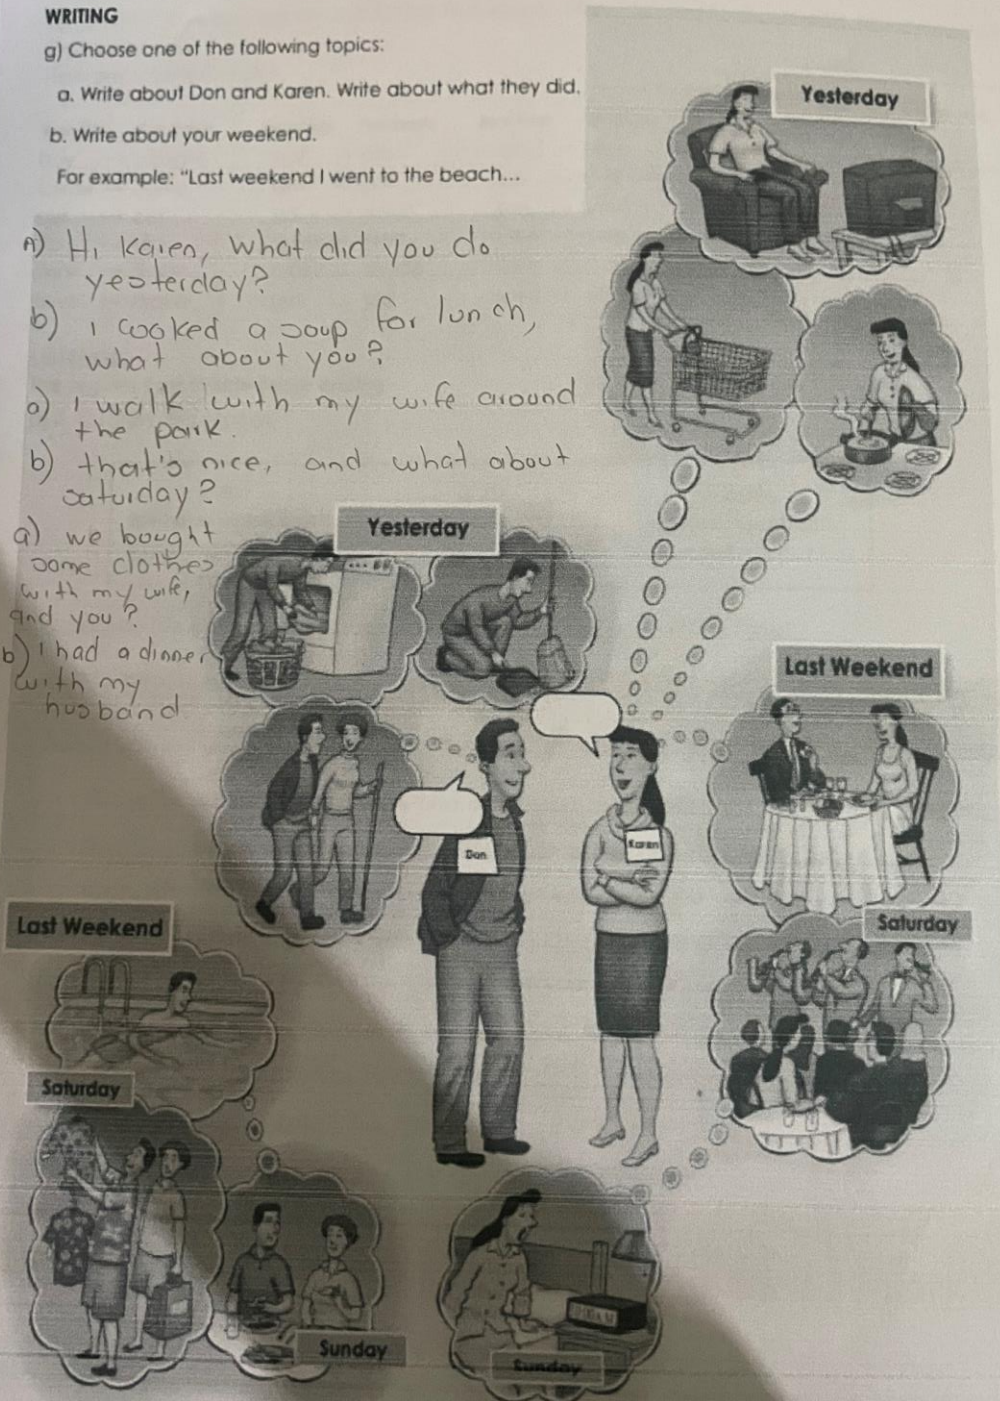 WRITING
g) Choose one of the following topics:
a. Write about Don and Karen. Write about what they did.
b. Write about your weekend.
For example: "Last weekend I went to the beach...
Yesterday
A) Hi Karen, what did you do
yesterday?
b) I cooked a soup for lunch,
what about you?
a) I walk with my wife around
the park.
b) that's nice, and what about
saturday?
a) we bought
some clothes
with my wife,
and you?
b) I had a dinner
with my
husband.
Yesterday
Last Weekend
Don
Karen
Last Weekend
Saturday
Saturday
Sunday
Sunday